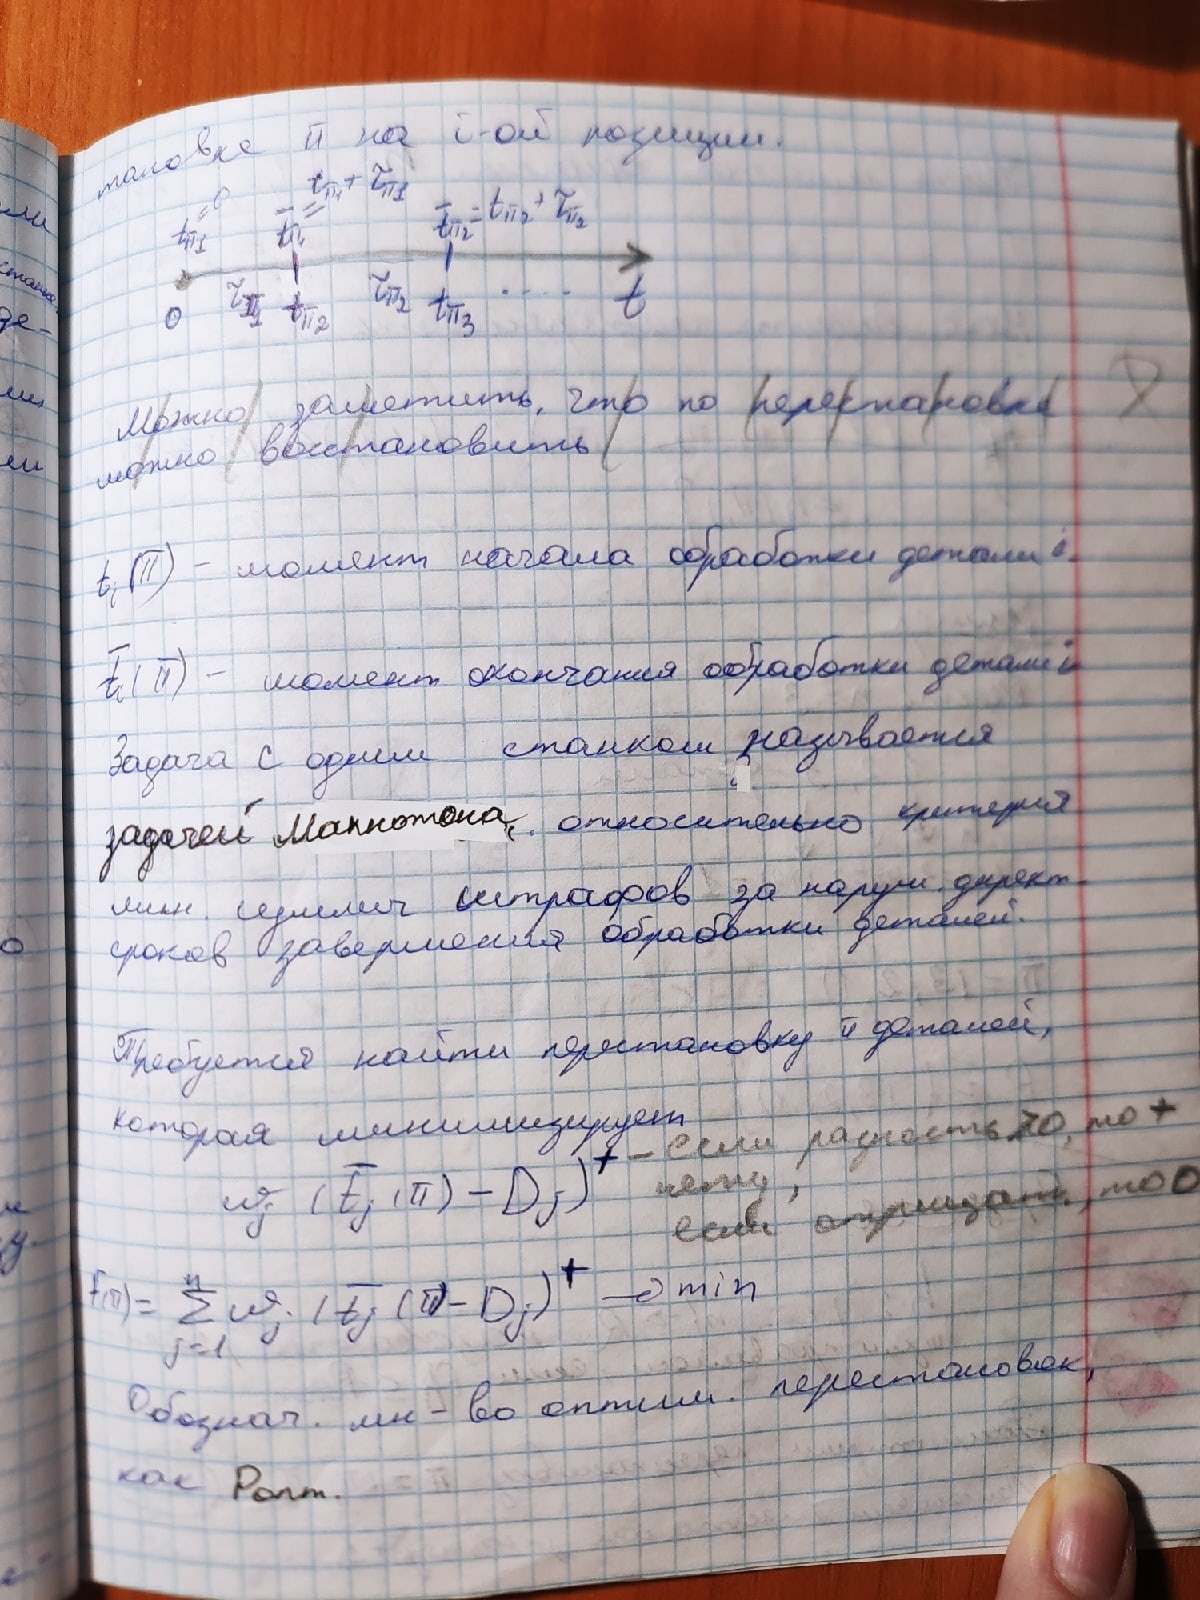 тановке π на i-ой позиции.
t_π1 = 0   t̄_π1 = t_π1 + τ_π1   t̄_π2 = t_π2 + τ_π2
0   τ_π1   t_π2   τ_π2   t_π3   ....   t
Можно заметить, что по перестановке
можно восстановить
t_i(π) – момент начала обработки детали i.
t̄_i(π) – момент окончания обработки детали i
Задача с одним станком называется
задачей Макнотона, относительно критерия
мин. штрафов за наруш. директ.
сроков завершения обработки деталей.
Требуется найти перестановку π деталей,
которая минимизирует
w_j (t̄_j(π) – D_j)⁺ – если разность >0, то +
если отрицат., то 0
F(π) = Σ_{j=1}^{n} w_j (t̄_j(π) – D_j)⁺ → min
Обознач. мн-во оптим. перестановок,
как Pопт.